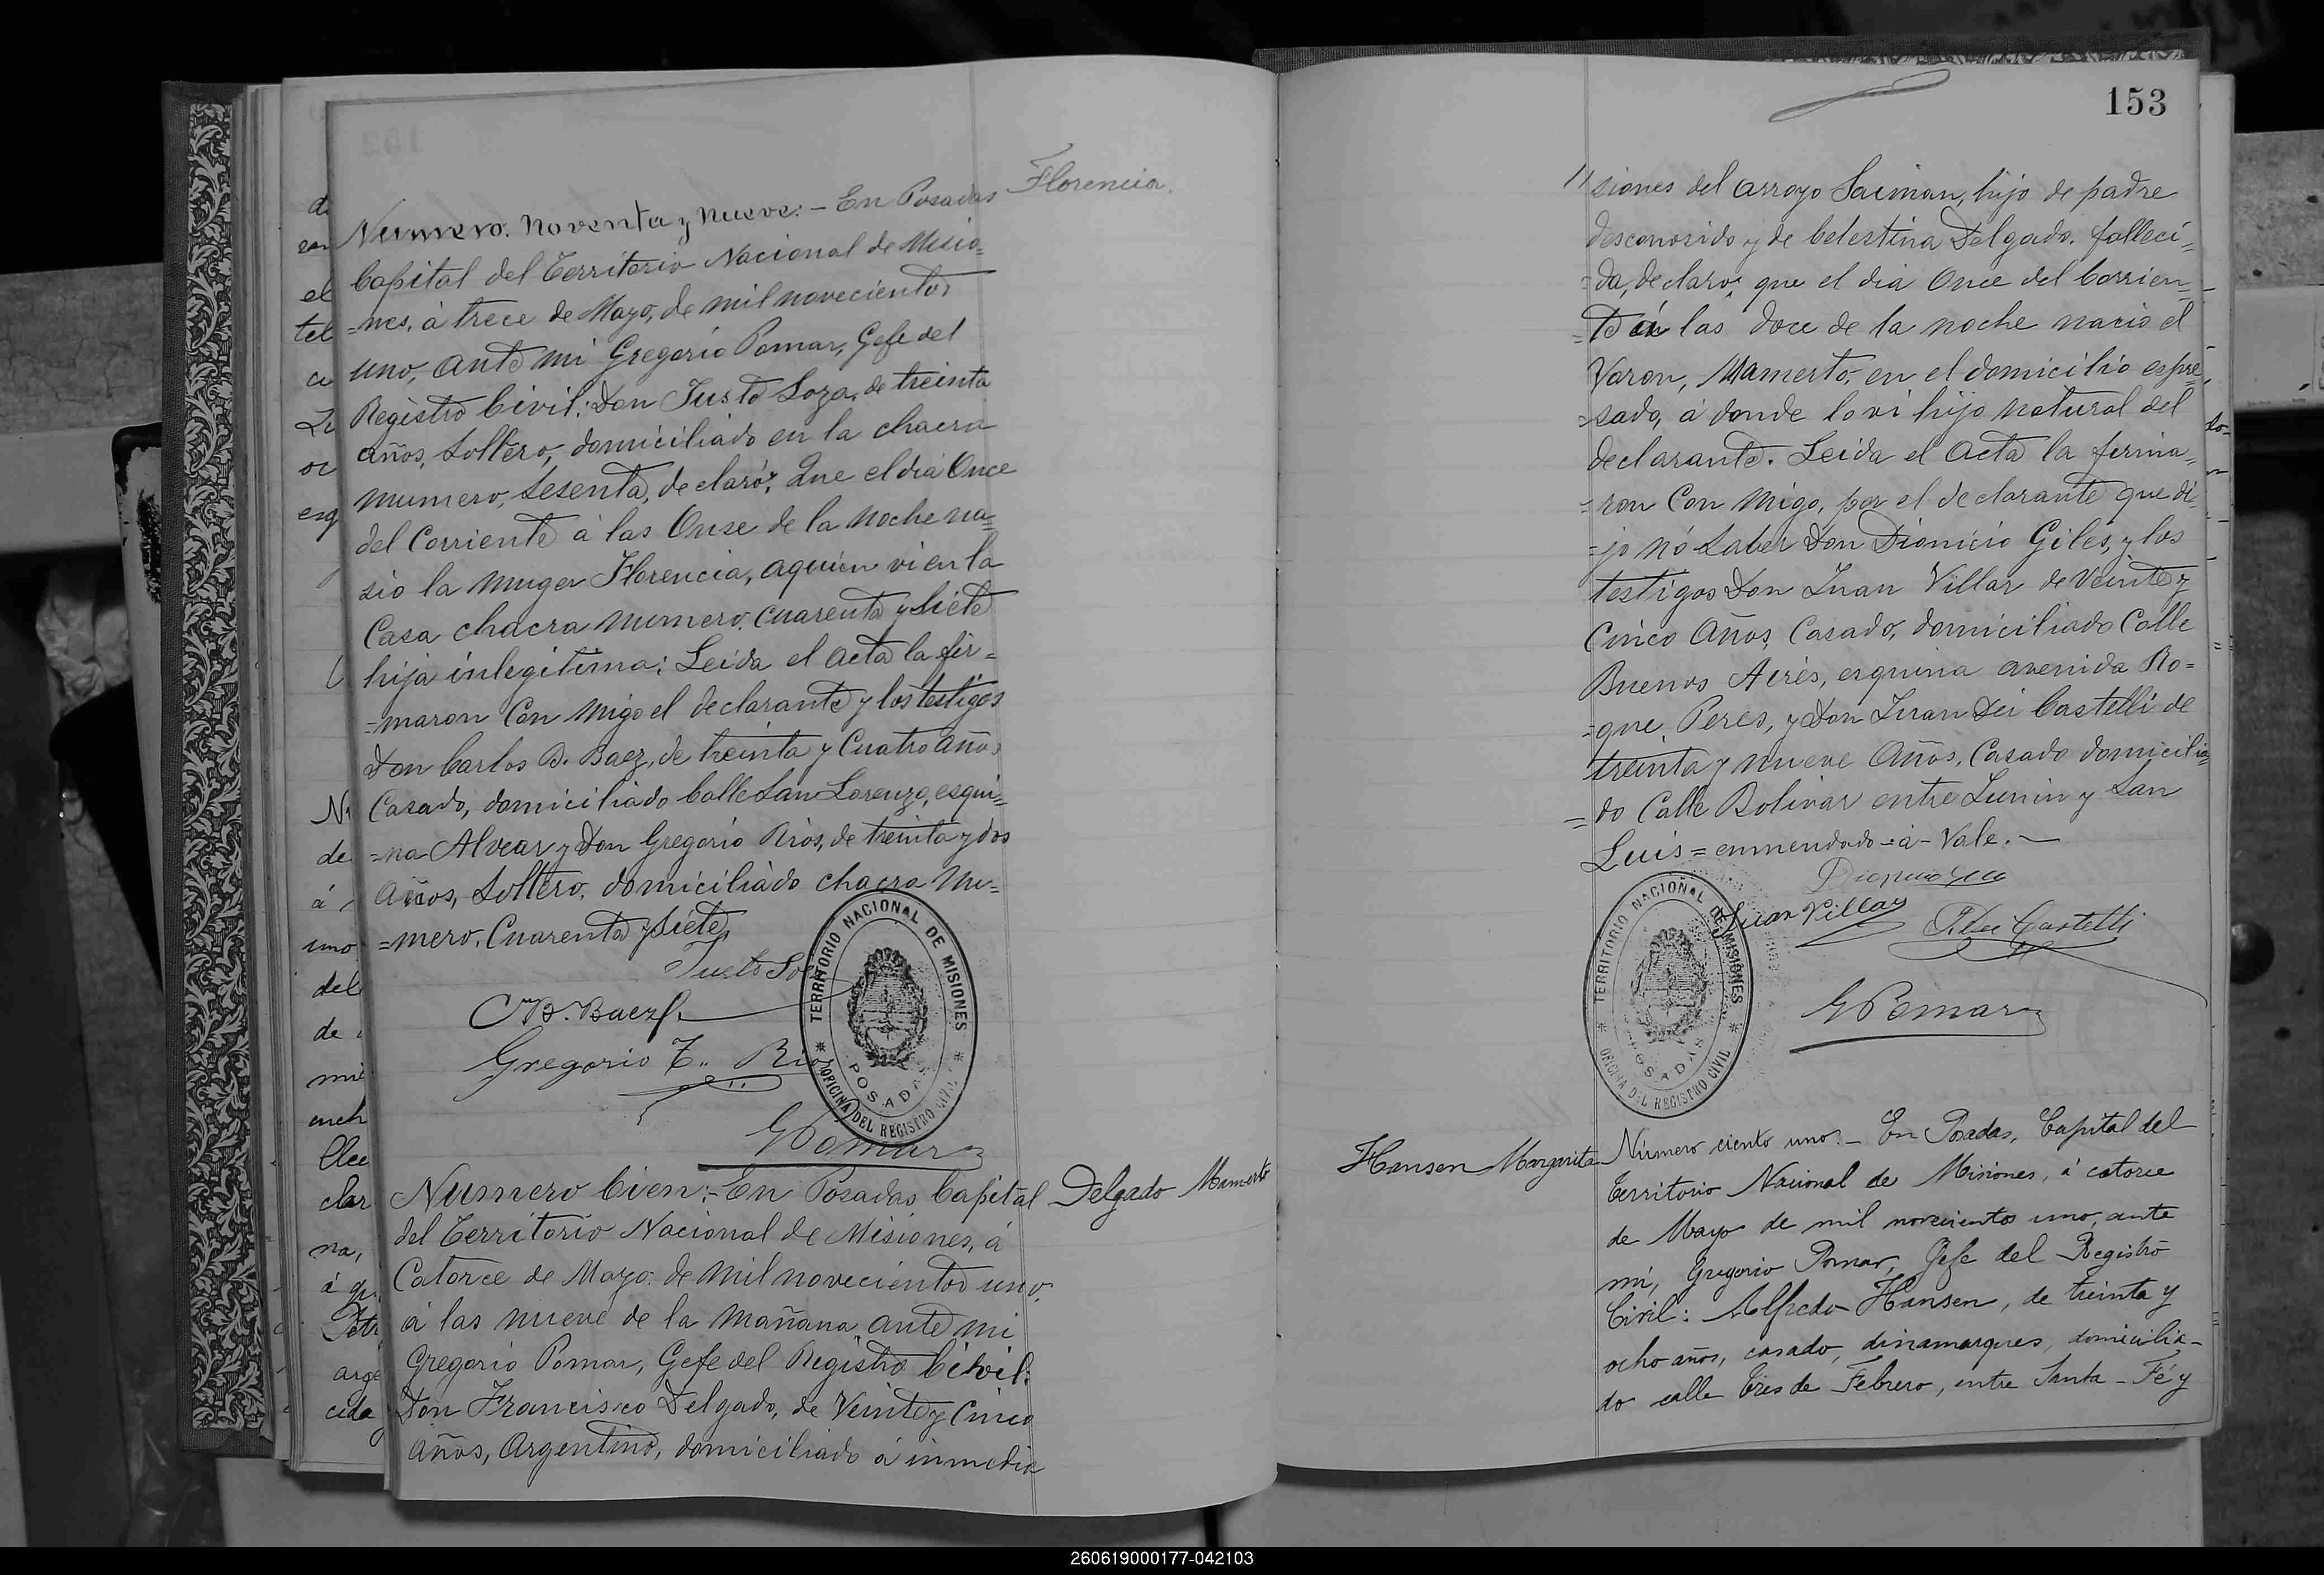 Florencia.
Numero. Noventa y Nueve:- En Posadas
Capital del Territorio Nacional de Misio=
=nes, à trece de Mayo, de mil novecientos
uno, ante mi Gregorio Pomar, Gefe del
Registro Civil: Don Justo Soza, de treinta
años, Soltero, domiciliado en la chacra
numero, Sesenta, declaró; Que el dia Once
del Corriente à las Onse de la noche na=
sio la muger Florencia, aquien vi en la
Casa chacra numero. cuarenta y Siete
hija inlegitima: Leida el acta la fir=
=maron Con migo el declarante y los testigos
Don Carlos B. Baez, de treinta y Cuatro años
Casado, domiciliado Calle San Lorenzo, esqui=
=na Alvear y Don Gregorio Rios, de treinta y dos
Años, Soltero, domiciliado chacra Nu=
=mero. Cuarenta y Siete
Justo So
C B. Baez
Gregorio T. Rio
TERRITORIO NACIONAL DE MISIONES
POSADAS
OFICINA DEL REGISTRO CIVIL
G Pomar
Delgado Mamerto
Numero Cien:- En Posadas Capital
del Territorio Nacional de Misiones, á
Catorce de Mayo. de mil novecientos uno.
à las nueve de la mañana, ante mi
Gregorio Pomar, Gefe del Registro Civil:
Don Francisco Delgado, de Veinte y Cinco
años, Argentino, domiciliado á inmedia
153
siones del arroyo Saiman, hijo de padre
desconosido y de Celestina Delgado. falleci=
=da, declaró; que el dia Once del Corrien=
=te á las doce de la noche nacio el
Varon, Mamerto, en el domicilio espre=
=sado, á donde lo vi hijo natural del
declarante. Leida el acta la firma=
=ron Con migo, por el declarante que di=
=jo nó Saber Don Dionicio Giles, y los
testigos Don Juan Villar de Veinte y
Cinco Años, Casado, domiciliado Calle
Buenos Aires, esquina avenida Ro=
=que Peres, y Don Juan Dei Castelli de
treinta y nueve Años, Casado domicilia=
=do Calle Bolivar entre Junin y San
Luis = enmendado - á - Vale. -
Juan Villar
Dei Castelli
TERRITORIO NACIONAL DE MISIONES
POSADAS
OFICINA DEL REGISTRO CIVIL
G Pomar
Hansen Margarita
Número ciento uno. - En Posadas, Capital del
Territorio Nacional de Misiones, á catorce
de Mayo de mil novecientos uno, ante
mi, Gregorio Pomar, Gefe del Registro
Civil: Alfredo Hansen, de treinta y
ocho años, casado, dinamarques, domicilia-
do calle Tres de Febrero, entre Santa-Fé y
260619000177-042103